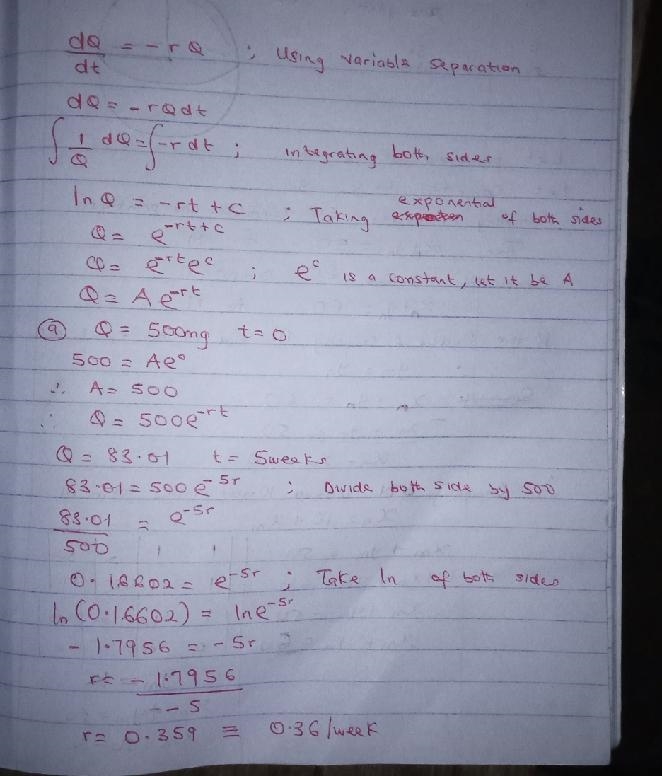 dQ/dt = -rQ ; Using variable separation
dQ = -rQdt
∫ 1/Q dQ = ∫ -r dt ; integrating both sides
ln Q = -rt + c ; Taking exponential of both sides
Q = e^(-rt+c)
Q = e^(-rt) e^c ; e^c is a constant, let it be A
Q = Ae^(-rt)
(a) Q = 500mg t = 0
500 = Ae^0
∴ A = 500
∴ Q = 500e^(-rt)
Q = 83.01 t = 5weeks
83.01 = 500 e^(-5r) ; Divide both side by 500
83.01/500 = e^(-5r)
0.16602 = e^(-5r) ; Take ln of both sides
ln (0.16602) = lne^(-5r)
-1.7956 = -5r
r = -1.7956/-5
r = 0.359 ≡ 0.36/week